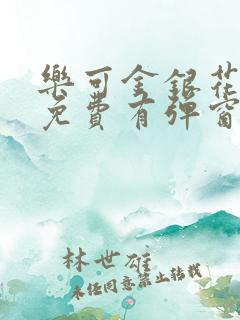 樂可金銀花
免費有彈窗
林世雄
未经同意禁止转载